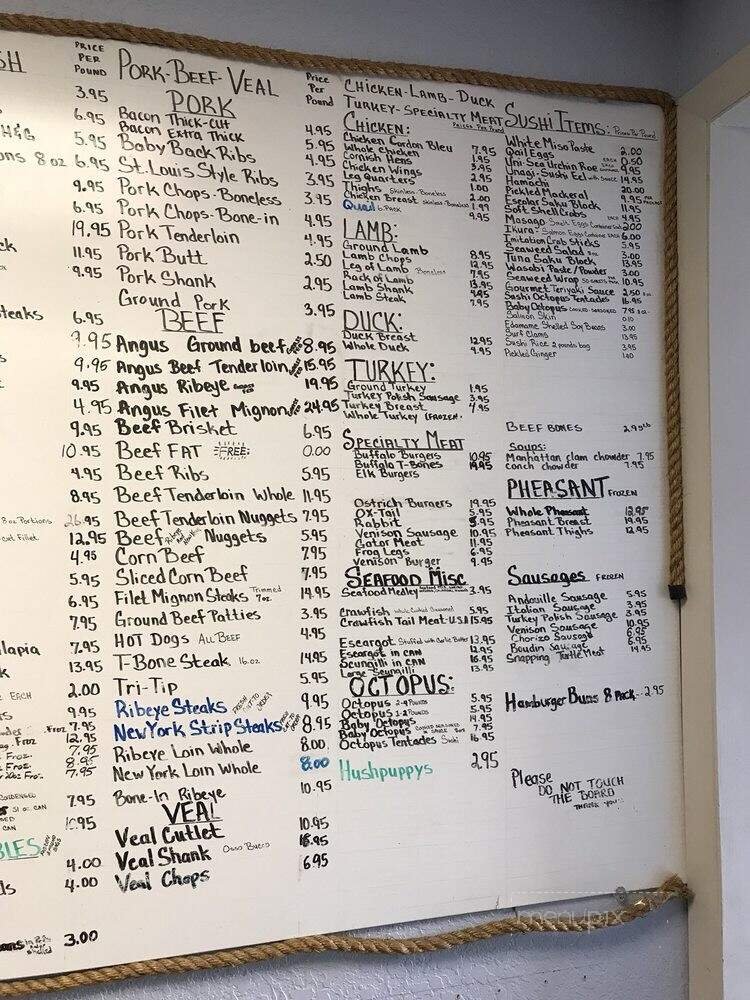 SH
PRICE
PER
POUND
3.95
6.95
H&G 5.95
ons 8 oz 6.95
9.95
6.95
19.95
ck 11.95
9.95
teaks 6.95
9.95
9.95
9.95
4.95
9.95
10.95
4.95
8.95
8 oz Portions 26.95
cat Fillet 12.95
4.95
5.95
6.95
7.95
lapia 7.95
k 13.95
EACH 2.00
9.95
Froz 7.95
Froz 12.95
Froz. 7.95
Froz. 8.95
Froz. 7.95
7.95
51 oz. CAN
CAN 10.95
BLES
4.00
ds 4.00
3.00
PORK-BEEF-VEAL
Price
Per
Pound
PORK
Bacon Thick-Cut 4.95
Bacon Extra Thick 5.95
Baby Back Ribs 4.95
St. Louis Style Ribs 3.95
Pork Chops-Boneless 3.95
Pork Chops-Bone-in 4.95
Pork Tenderloin 4.95
Pork Butt 2.50
Pork Shank 2.95
Ground Pork 3.95
BEEF
Angus Ground beef 8.95
Angus Beef Tenderloin 15.95
Angus Ribeye 19.95
Angus Filet Mignon 24.95
Beef Brisket 6.95
Beef FAT FREE: 0.00
Beef Ribs 5.95
Beef Tenderloin Whole 11.95
Beef Tenderloin Nuggets 7.95
Beef Nuggets 5.95
Corn Beef 7.95
Sliced Corn Beef 7.95
Filet Mignon Steaks Trimmed 7oz. 14.95
Ground Beef Patties 3.95
HOT Dogs ALL BEEF 4.95
T-Bone Steak 16 oz 14.95
Tri-Tip 5.95
Ribeye Steaks 9.95
New York Strip Steaks 8.95
Ribeye Loin Whole 8.00
New York Loin Whole 8.00
Bone-In Ribeye 10.95
VEAL
Veal Cutlet 10.95
Veal Shank Osso Buco 15.95
Veal Chops 6.95
CHICKEN-LAMB-DUCK
TURKEY-SPECIALTY MEAT
Prices Per Pound
CHICKEN:
Chicken Cordon Bleu 7.95
Whole Chicken 1.95
Cornish Hens 3.95
Chicken Wings 2.95
Leg Quarters 1.00
Thighs Skinless-Boneless 2.00
Chicken Breast Skinless-Boneless 1.99
Quail 6-PACK 9.95
LAMB:
Ground Lamb 8.95
Lamb Chops 12.95
Leg of Lamb Boneless 7.95
Rack of Lamb 13.95
Lamb Shank 4.95
Lamb Steak 7.95
DUCK:
Duck Breast 12.95
Whole Duck 4.95
TURKEY:
Ground Turkey 1.95
Turkey Polish Sausage 3.95
Turkey Breast 4.95
Whole Turkey (FROZEN.
SPECIALTY MEAT
Buffalo Burgers 10.95
Buffalo T-Bones 19.95
Elk Burgers
Ostrich Burgers 19.95
Ox-Tail 5.95
Rabbit 5.95
Venison Sausage 10.95
Gator Meat 11.95
Frog Legs 6.95
Venison Burger 9.95
SEAFOOD MISC
Seafood Medley 3.95
Crawfish whole Cooked Seasoned 5.95
Crawfish Tail Meat U.S.A 15.95
Escargot Stuffed with Garlic Butter 13.95
Escargot in CAN 12.95
Scungilli in CAN 16.95
Large Scungilli 13.95
OCTOPUS:
Octopus 2-4 Pounds 5.95
Octopus 1-2 Pounds 5.95
Baby Octopus 14.95
Baby Octopus 7.95
Octopus Tentacles Sushi 16.95
Hushpuppys 2.95
SUSHI ITEMS: Prices Per Pound
White Miso Paste 2.00
Qail Eggs EACH 0.50
Uni-Sea Urchin Roe 9.95
Unagi-Sushi Eel with Sauce 14.95
Hamachi 20.00
Pickled Mackeral 9.95
Escolar Saku Block 11.95
Soft Shell Crabs EACH 4.95
Masago Smelt Eggs 2.00
Ikura- Salmon Eggs 6.00
Imitation Crab Sticks 5.95
Seaweed Salad 3.00
Tuna Saku Block 13.95
Wasabi Paste/Powder 3.00
Seaweed Wrap 10.95
Gourmet Teriyaki Sauce 2.50
Sushi Octopus Tentacles 16.95
Baby Octopus COOKED-SEASONED 7.95
Salmon Skin
Edamame Shelled Soy Beans 3.00
Surf Clams 13.95
Sushi Rice 2 pounds bag 3.95
Pickled Ginger
BEEF BONES 2.95 lb
SOUPS:
Manhattan clam chowder 7.95
conch chowder 7.95
PHEASANT FROZEN
Whole Pheasant 12.95
Pheasant Breast 19.95
Pheasant Thighs 12.95
Sausages FROZEN
Andouille Sausage 5.95
Italian Sausage 3.95
Turkey Polish Sausage 3.95
Venison Sausage 10.95
Chorizo Sausage 6.95
Boudin Sausage 6.95
Snapping Turtle Meat 14.95
Hamburger Buns 8 Pack - 2.95
Please
DO NOT TOUCH
THE BOARD
THANK YOU
menupix